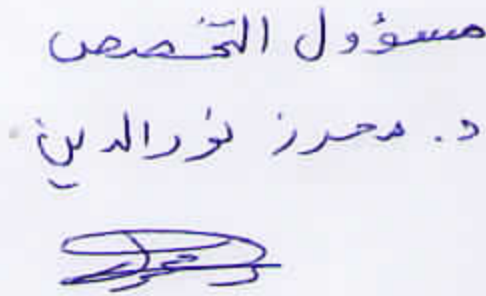 مسؤول التخصص
د. محرز نورالدين